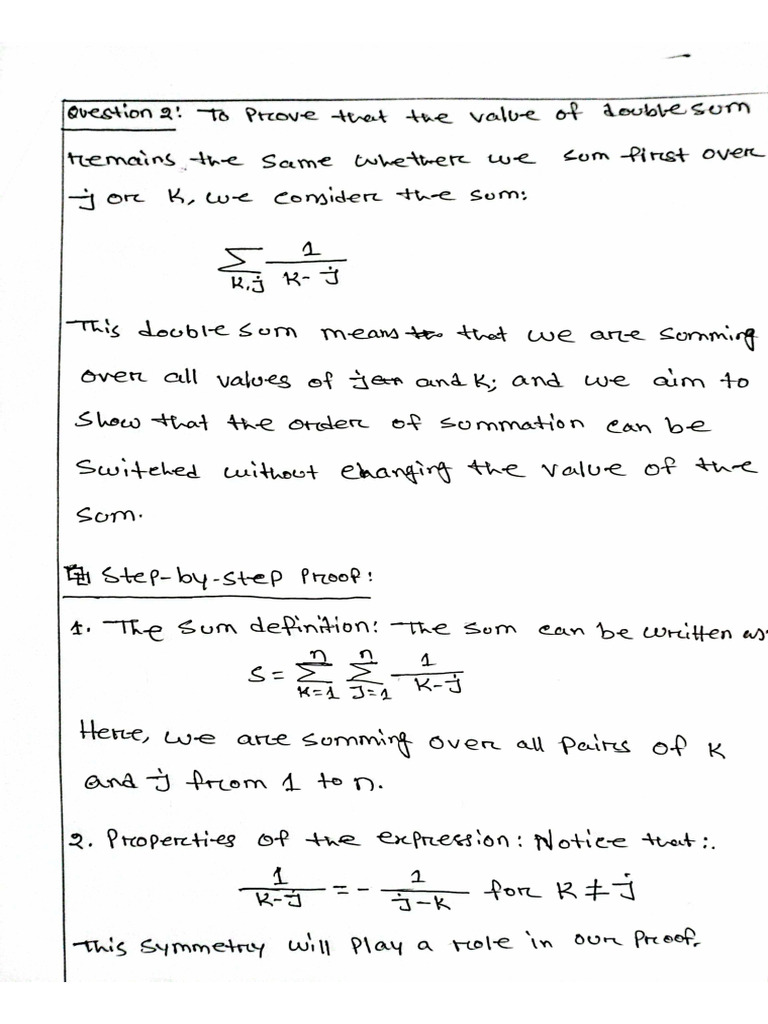 Question 2: To Prove that the value of double sum
remains the same whether we sum first over
j or k, we consider the sum:
∑_{k,j} 1/(k-j)
This double sum means that we are summing
over all values of j and k; and we aim to
show that the order of summation can be
switched without changing the value of the
sum.
Step-by-step Proof:
1. The sum definition: The sum can be written as:
S = ∑_{k=1}^{n} ∑_{j=1}^{n} 1/(k-j)
Here, we are summing over all pairs of k
and j from 1 to n.
2. Properties of the expression: Notice that:.
1/(k-j) = - 1/(j-k) for k ≠ j
This symmetry will play a role in our proof.